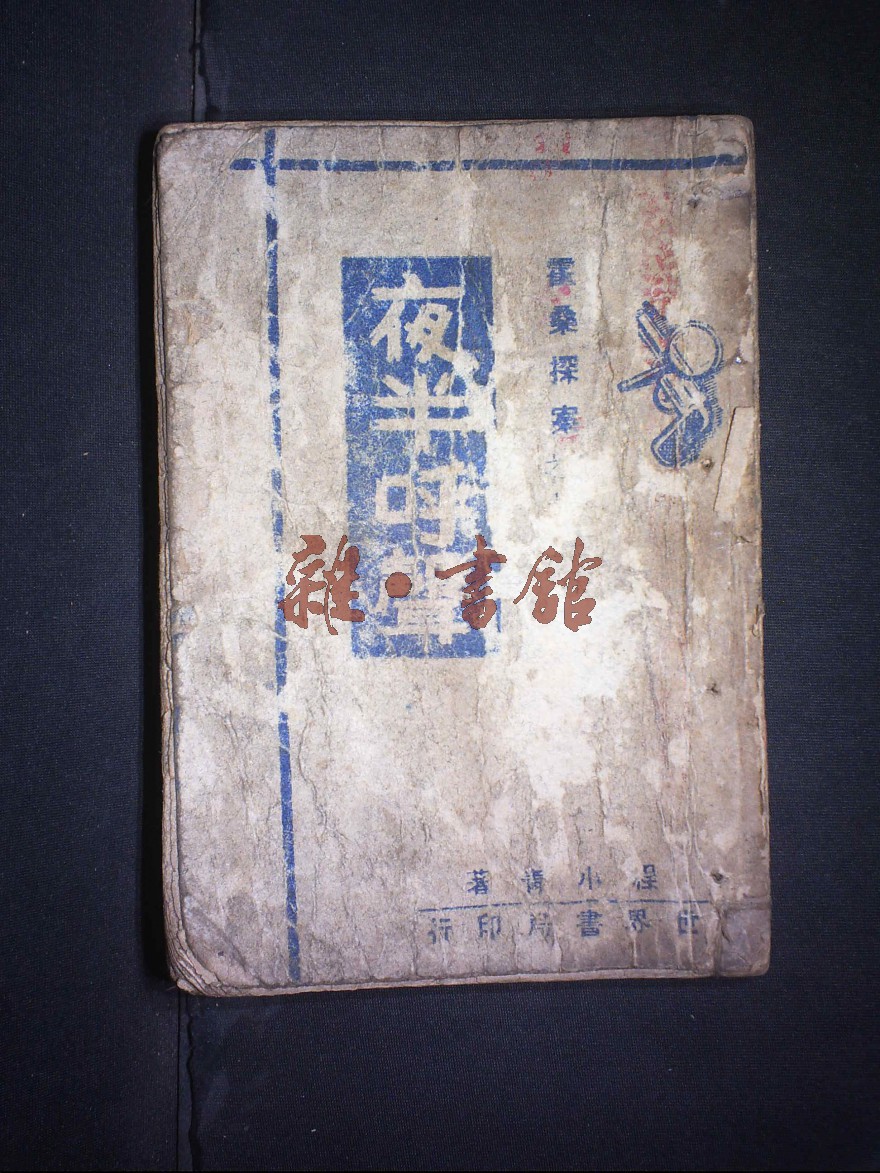 霍桑探案之
夜半呼聲
程小青著
世界書局印行
雜·書館